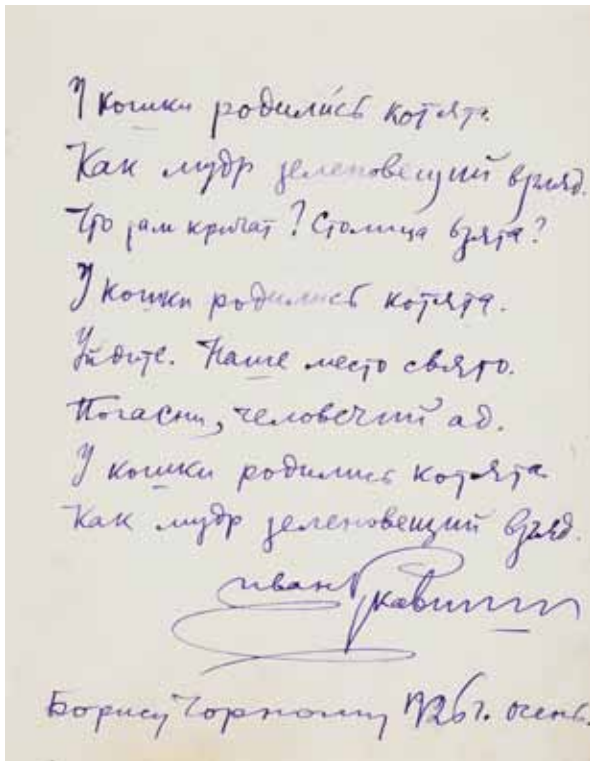 У кошки родились котята.
Как мудр зеленовещий взгляд.
Что там кричат? Столица взята?
У кошки родились котята.
Уйдите. Наше место свято.
Погасни, человечий ад.
У кошки родились котята
Как мудр зеленовещий взгляд.
Иван
Борису 1926 г.